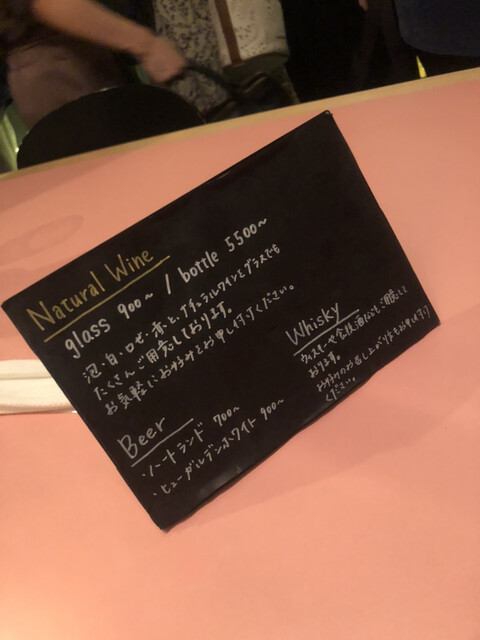 Natural Wine
glass 900~ / bottle 5500~
泡・白・ロゼ・赤・と、ナチュラルワインをグラスでも
たくさんご用意しております。
お気軽にお好みをお申し付けください。
Beer
・ハートランド 700~
・ヒューガルデンホワイト 900~
Whisky
ウィスキーや蒸留酒などもご用意して
おります。
お好みのお召し上がり方をお申し付け
ください。